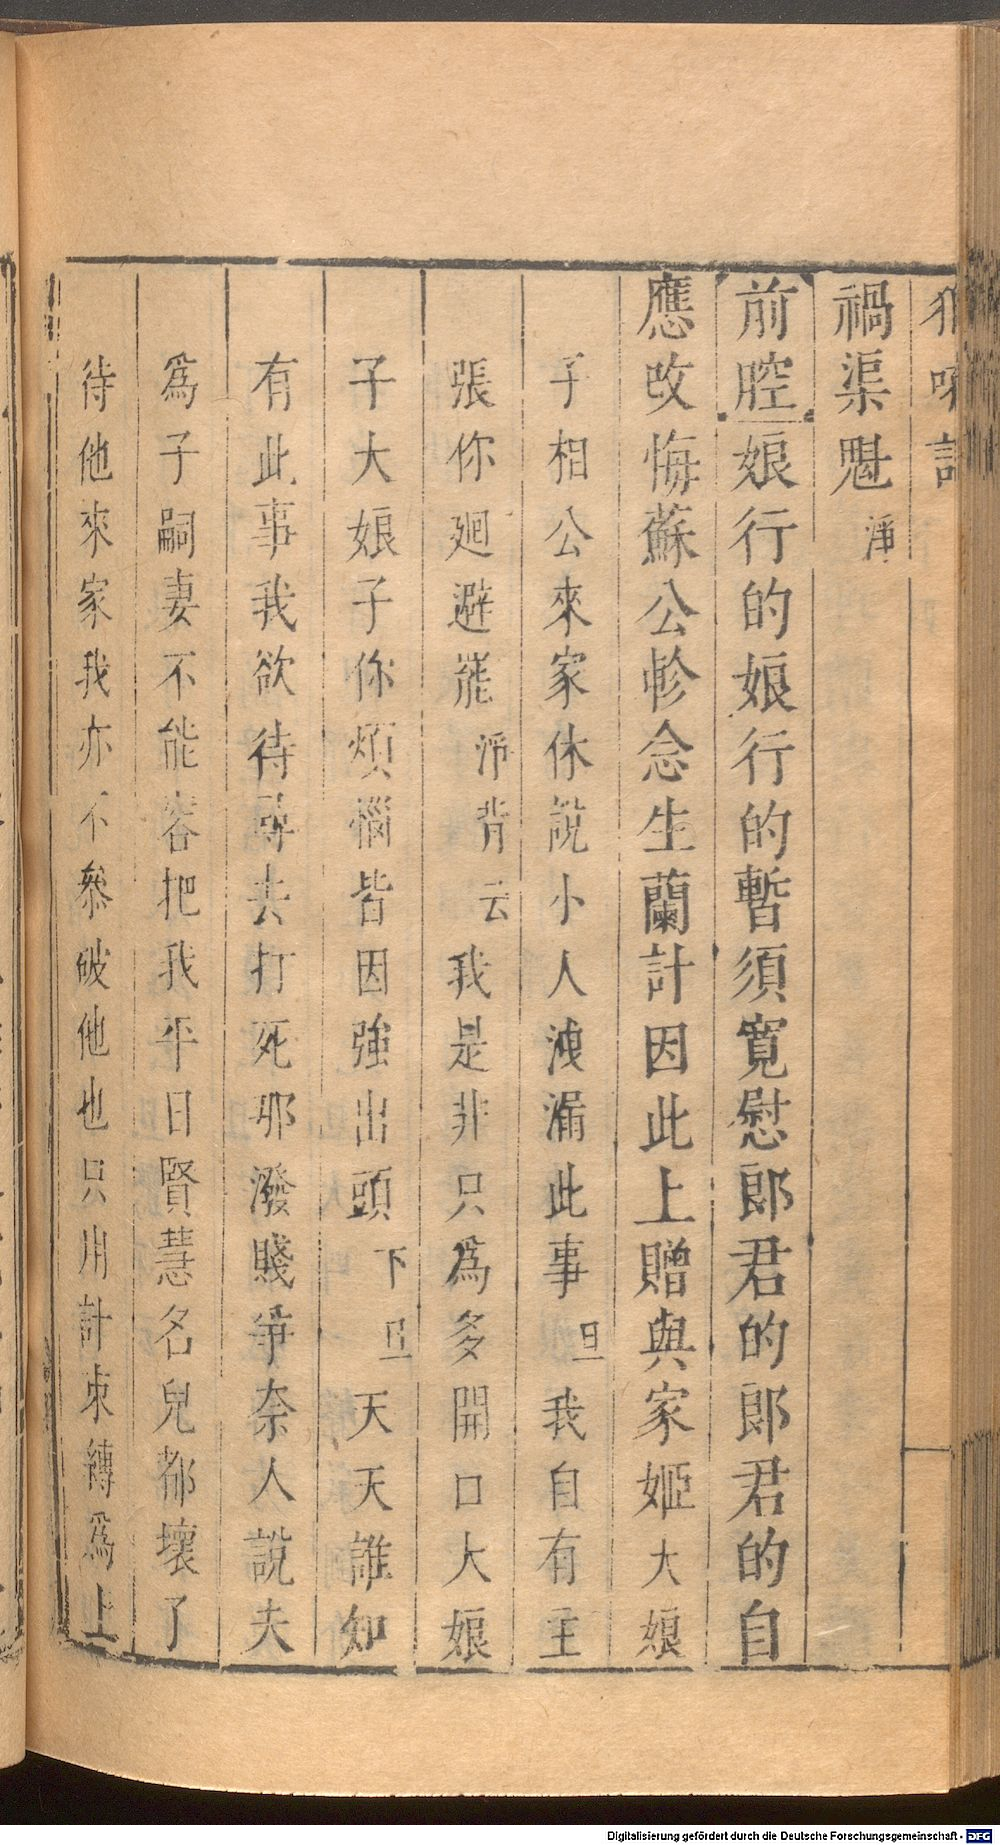 禍渠魁淨
前腔娘行的娘行的暫須寬慰郎君的郎君的自
應改悔蘇公軫念生蘭計因此上贈與家姬大娘
子相公來家休說小人洩漏此事旦我自有主
張你廻避罷淨背云我是非只爲多開口大娘
子大娘子你煩惱皆因強出頭下旦天天誰知
有此事我欲待尋去打死那潑賤爭奈人說夫
爲子嗣妻不能容把我平日賢慧名兒都壞了
待他來家我亦不叅破他也只用計束縛爲上
Digitalisierung gefördert durch die Deutsche Forschungsgemeinschaft - DFG